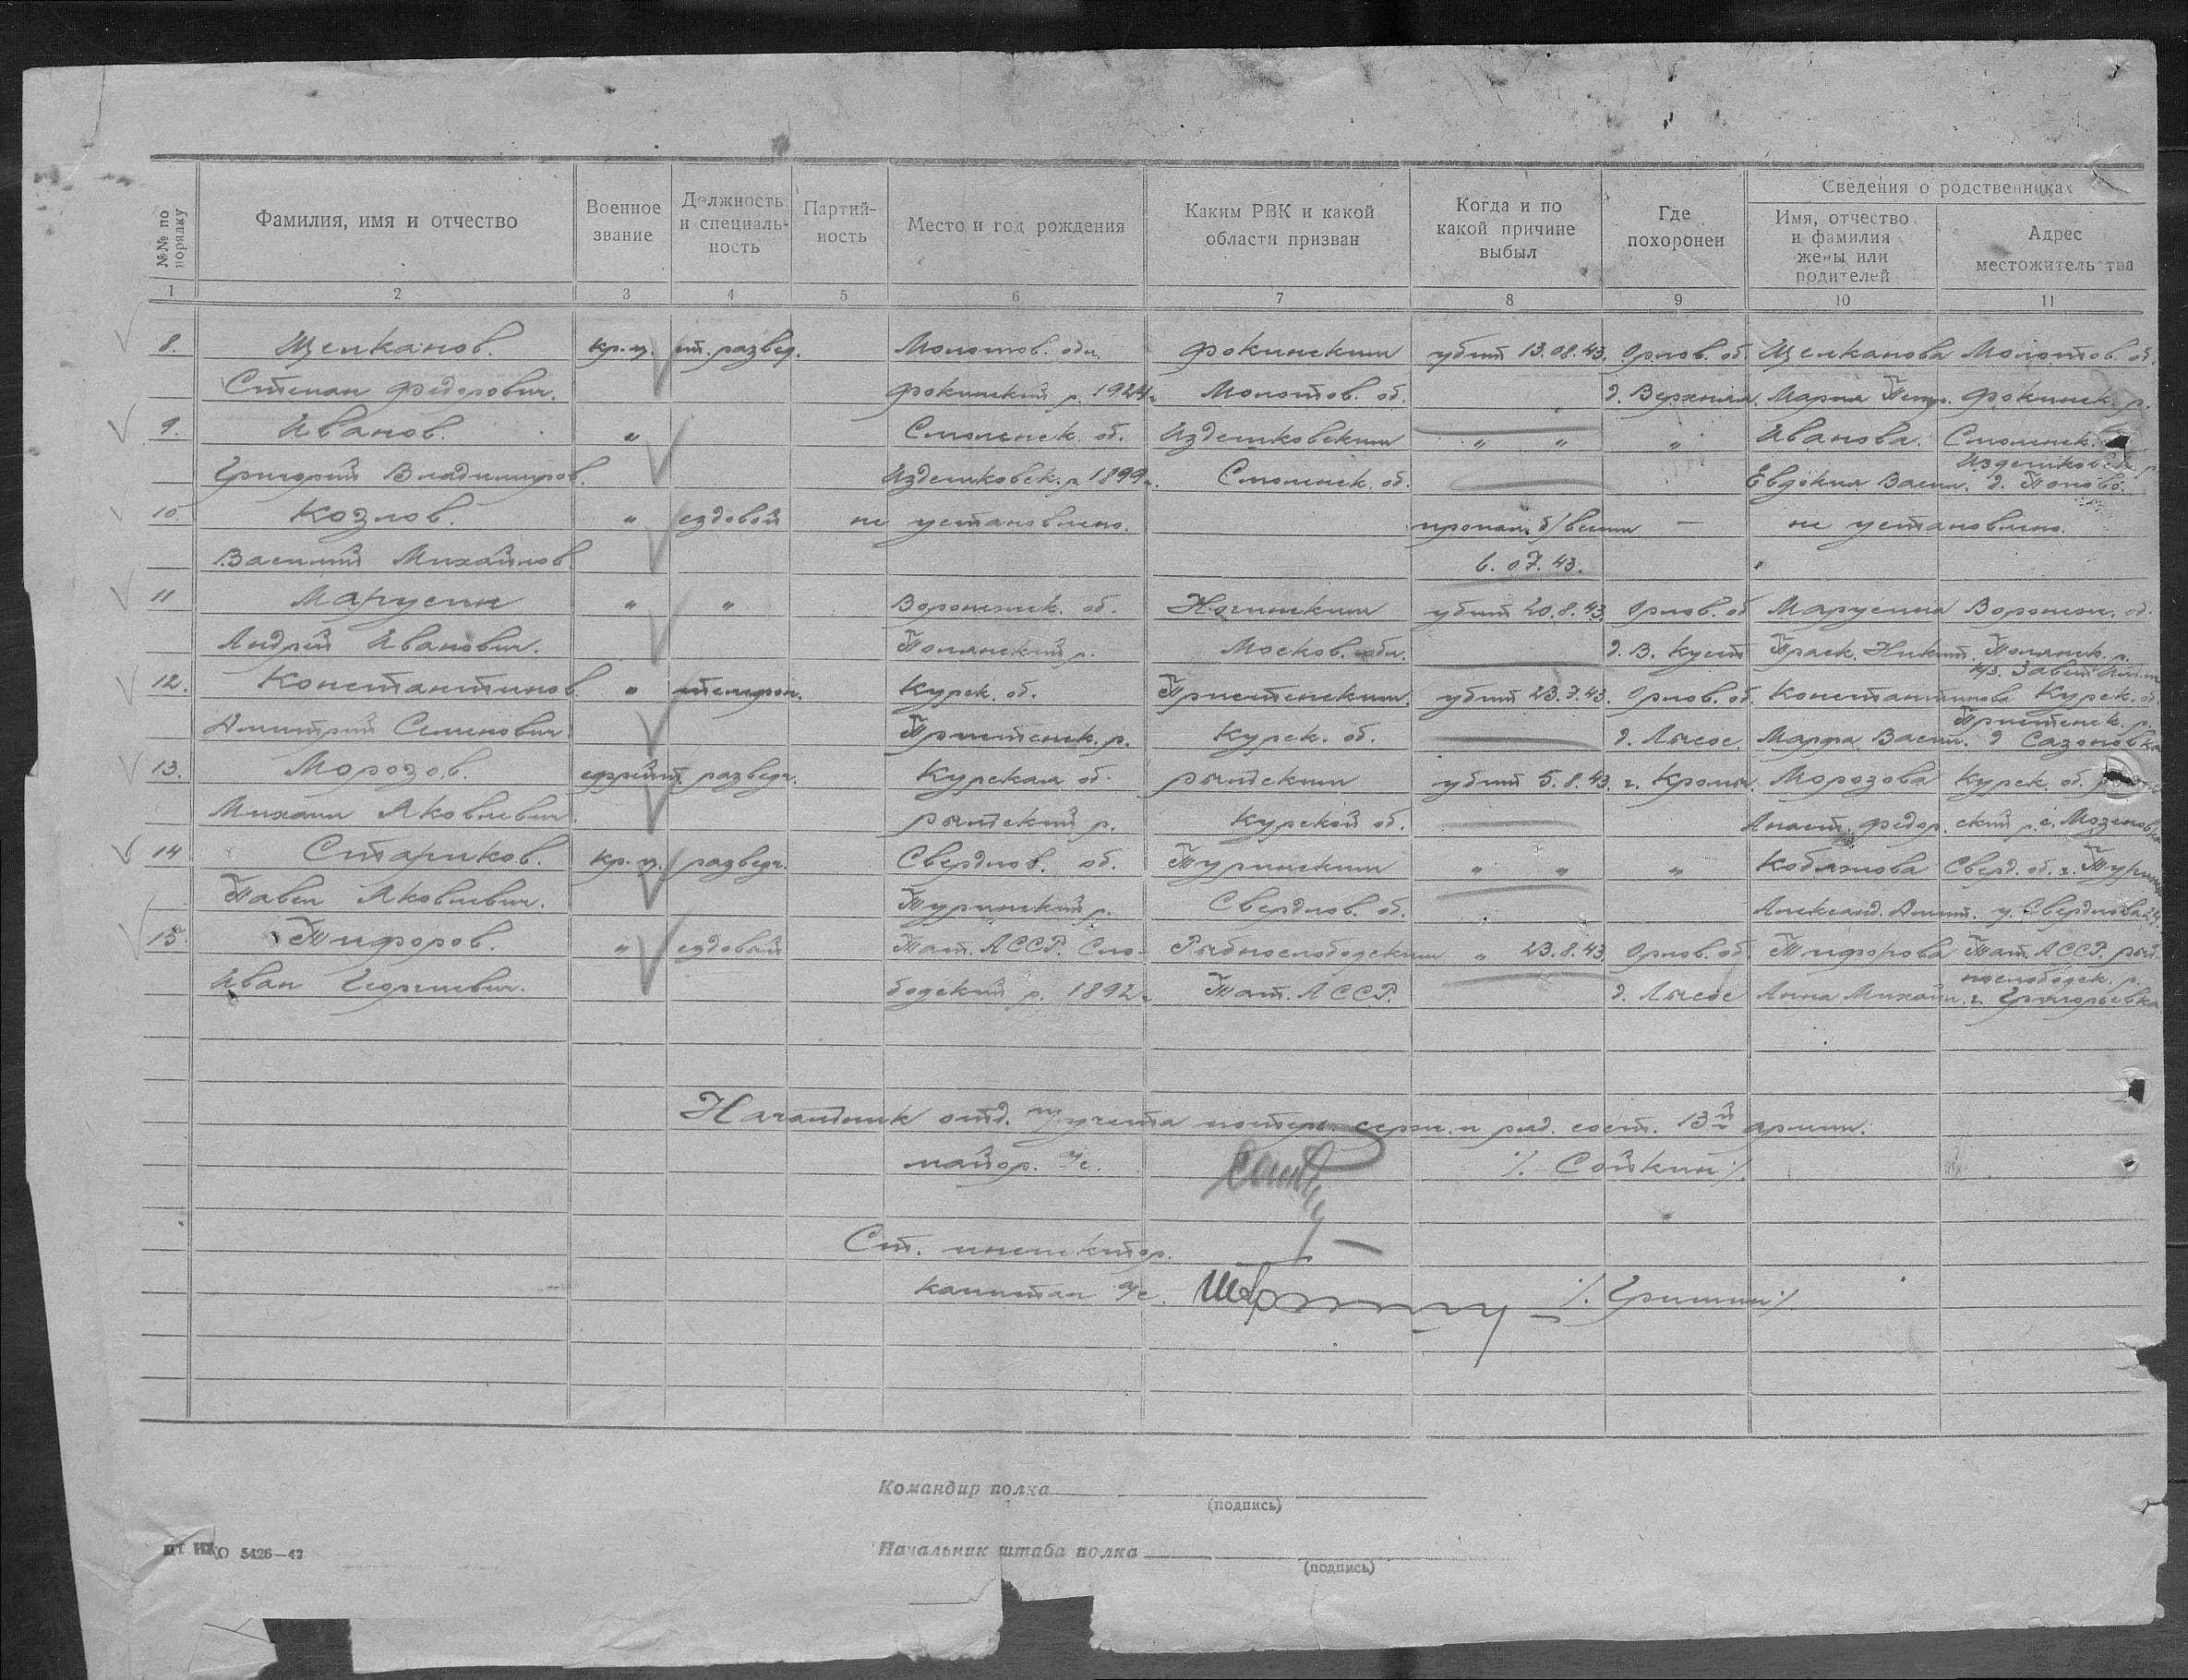 №№ по порядку | Фамилия, имя и отчество | Военное звание | Должность и специаль-ность | Партий-ность | Место и год рождения | Каким РВК и какой области призван | Когда и по какой причине выбыл | Где похоронен | Сведения о родственниках
Имя, отчество и фамилия жены или родителей | Адрес местожительства
1 2 3 4 5 6 7 8 9 10 11
8. Щелканов. кр-ц. ст. развед. Молотов. обл. Фокинским убит 13.08.43. Орлов. об. Щелканова Молотов. об.
Степан Федорович. Фокинский р. 1924г. Молотов. об. Мария Петр. Фокинск. р.
9. Иванов. " Смоленск. об. Издешковским " " " Иванова. Смоленск.
Издешковск р.
Григорий Владимиров. Издешковск. р 1899г. Смоленск. об. Евдокия Васил. д. Попово.
10 Козлов. " ездовой не установлено. пропал б/вести — не установлено.
Василий Михайлов 6.07.43.
11 Марусин " " Воронежск. об. Ногинским убит 20.8.43. Орлов. об Марусина Воронеж. об.
Андрей Иванович. Полянский р. Москов. обл. д. В. Куст Праск. Никит. Полянск. р.
12. Константинов. " телефон. Курск. об. Пристенским. убит 23.7.43. Орлов. об. Константинова Курск. об.
Пристенск. р.
Дмитрий Семенович. Пристенск. р. Курск. об. Марфа Васил. д Сазоновка
13. Морозов. ефрейт. развед. Курская об. рыльским убит 5.8.43. г. Кромы. Морозова Курск. об.
Михаил Яковлевич. рыльский р. Курской об. Анаст. Федор. ский р.
14 Стариков. кр-ц. развед. Свердлов. об. Туринским " " " Сверд. об. г.
Павел Яковлевич. Туринский р. Свердлов. об. Александ. Дмит. у. Свердлова
15. Тифоров. " ездовой Тат. АССР. Сло- Рыбнослободским " 23.8.43. Орлов. об. Тифорова Тат. АССР. рыб-
нослободск. р.
Иван Георгиевич. бодский р. 1892г Тат. АССР. Анна Михайл. Григорьевка
Начальник отд. учета потерь серж. и ряд. сост. 13й армии.
майор. /Сойкин/.
Ст. инспектор.
капитан /Гришин/.
Командир полка
(подпись)
Начальник штаба полка
(подпись)
НКО 5426—42